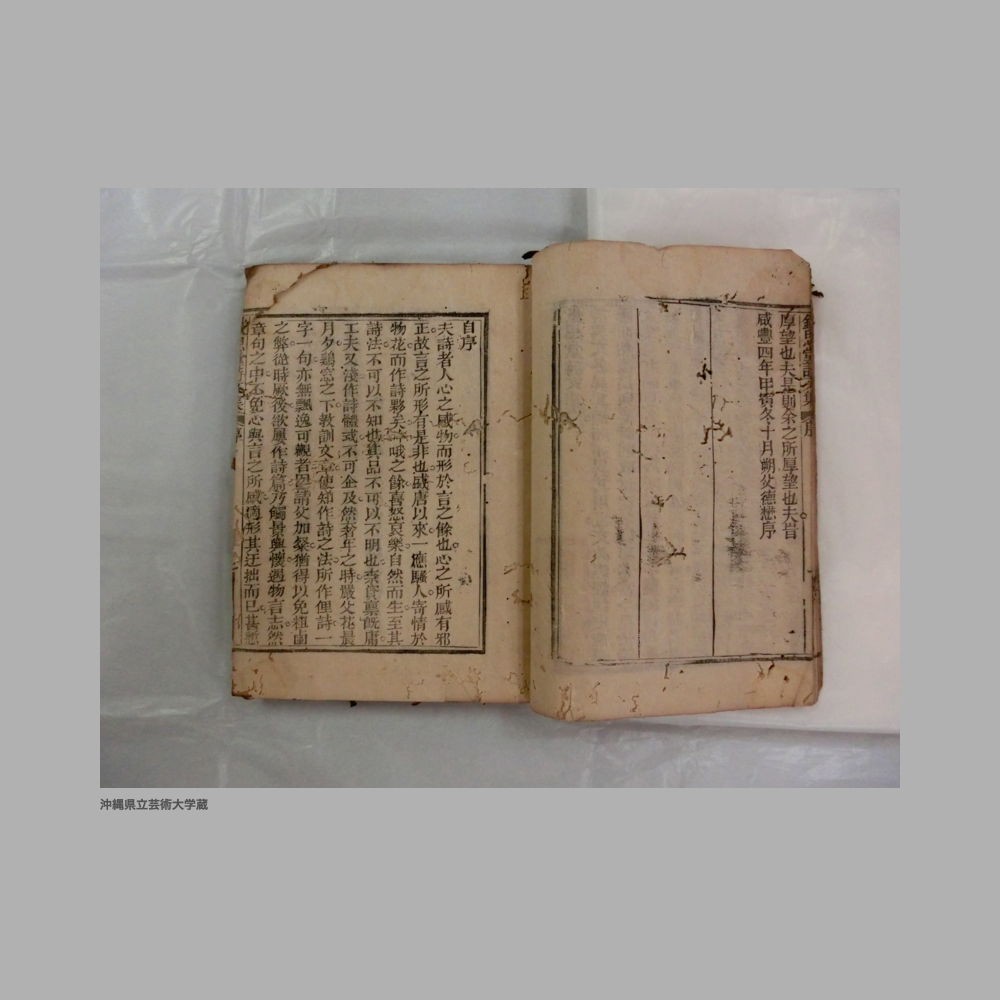 厚望也夫是則余之所厚望也夫旨
咸豐四年甲寅冬十月朔父德懋序
自序
夫詩者人心之感物而形於言之餘也心之所感有邪
正故言之所形有是非也盛唐以來一應騷人寄情於
物花而作詩夥矣吟哦之餘喜怒哀樂自然而生至其
詩法不可以不知也其品不可以不明也余資稟既庸
工夫又淺作詩體或不可企及然若年之時嚴父花晨
月夕鷄窓之下教訓文章使知作詩之法所作但詩一
字一句亦無飄逸可觀者因請父加祭猶得以免粗鹵
之弊從時厥後欲屢作詩篇乃觸景興懷遇物言志然
章句之中不免心與言之所感過形其迂拙而已甚
沖縄県立芸術大学蔵